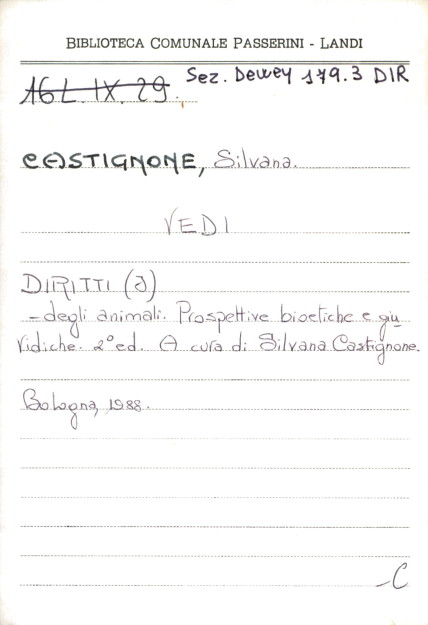 BIBLIOTECA COMUNALE PASSERINI - LANDI
16 L. IX. 29. Sez. Dewey 179.3 DIR
CASTIGNONE, Silvana.
VEDI
DIRITTI (I)
- degli animali. Prospettive bioetiche e giu
ridiche. 2° ed. A cura di Silvana Castignone.
Bologna, 1988.
-C